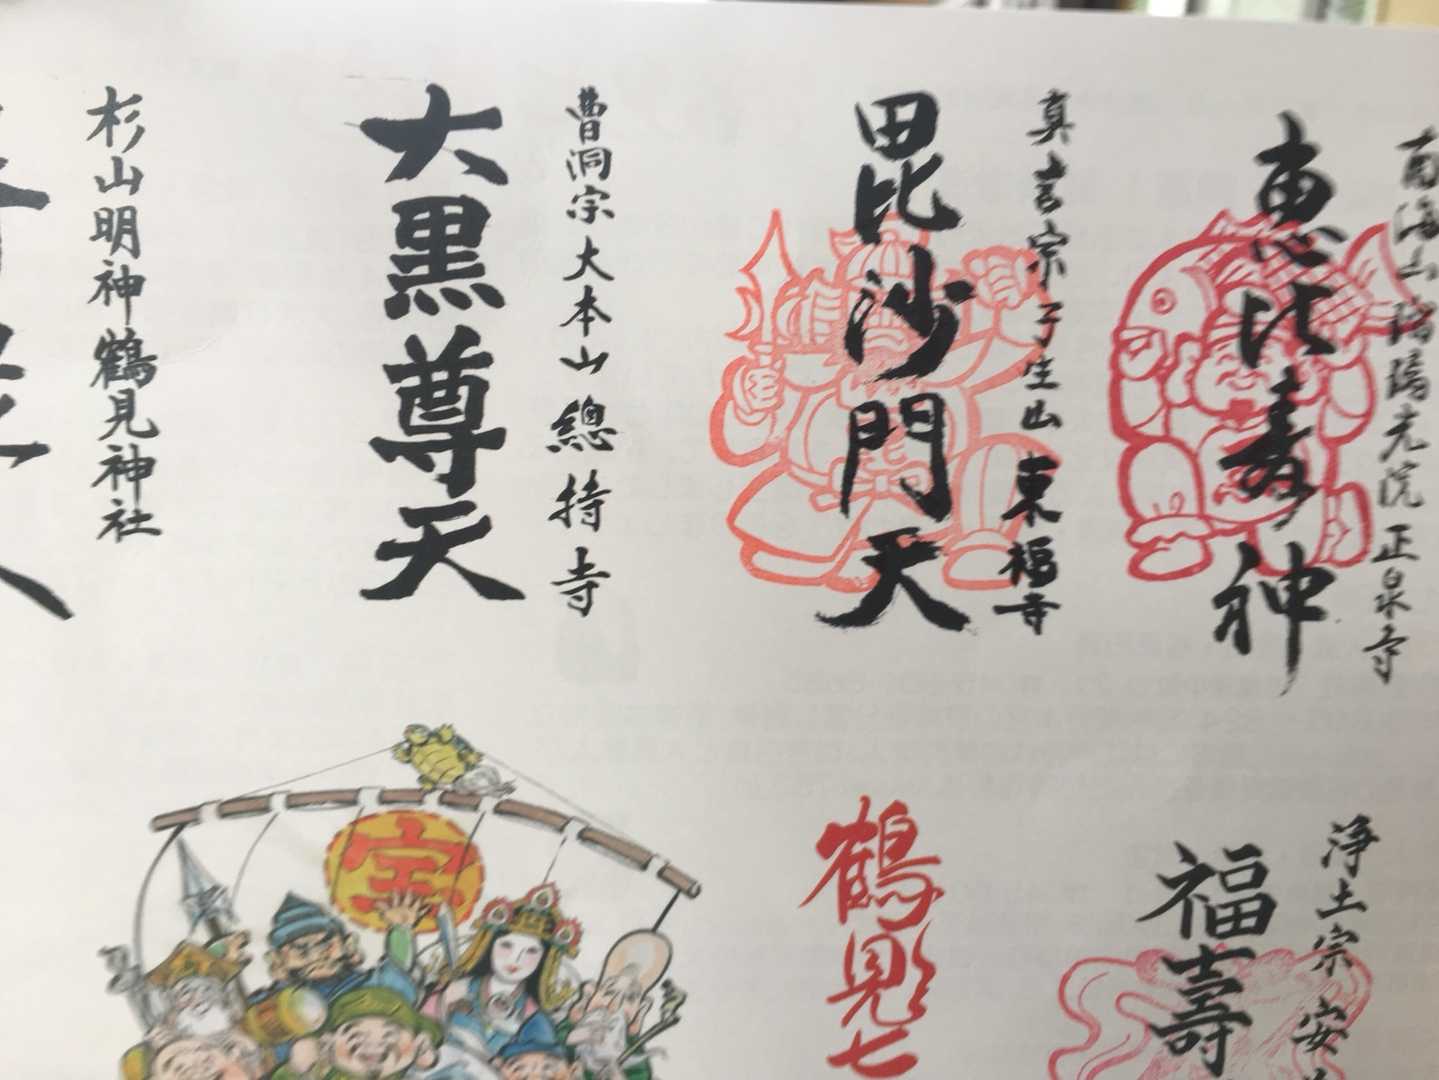 南海山瑠璃光院正泉寺
恵比寿神
真言宗子生山東福寺
毘沙門天
曹洞宗大本山總持寺
大黒尊天
杉山明神鶴見神社
浄土宗安
福壽
鶴見七
宝